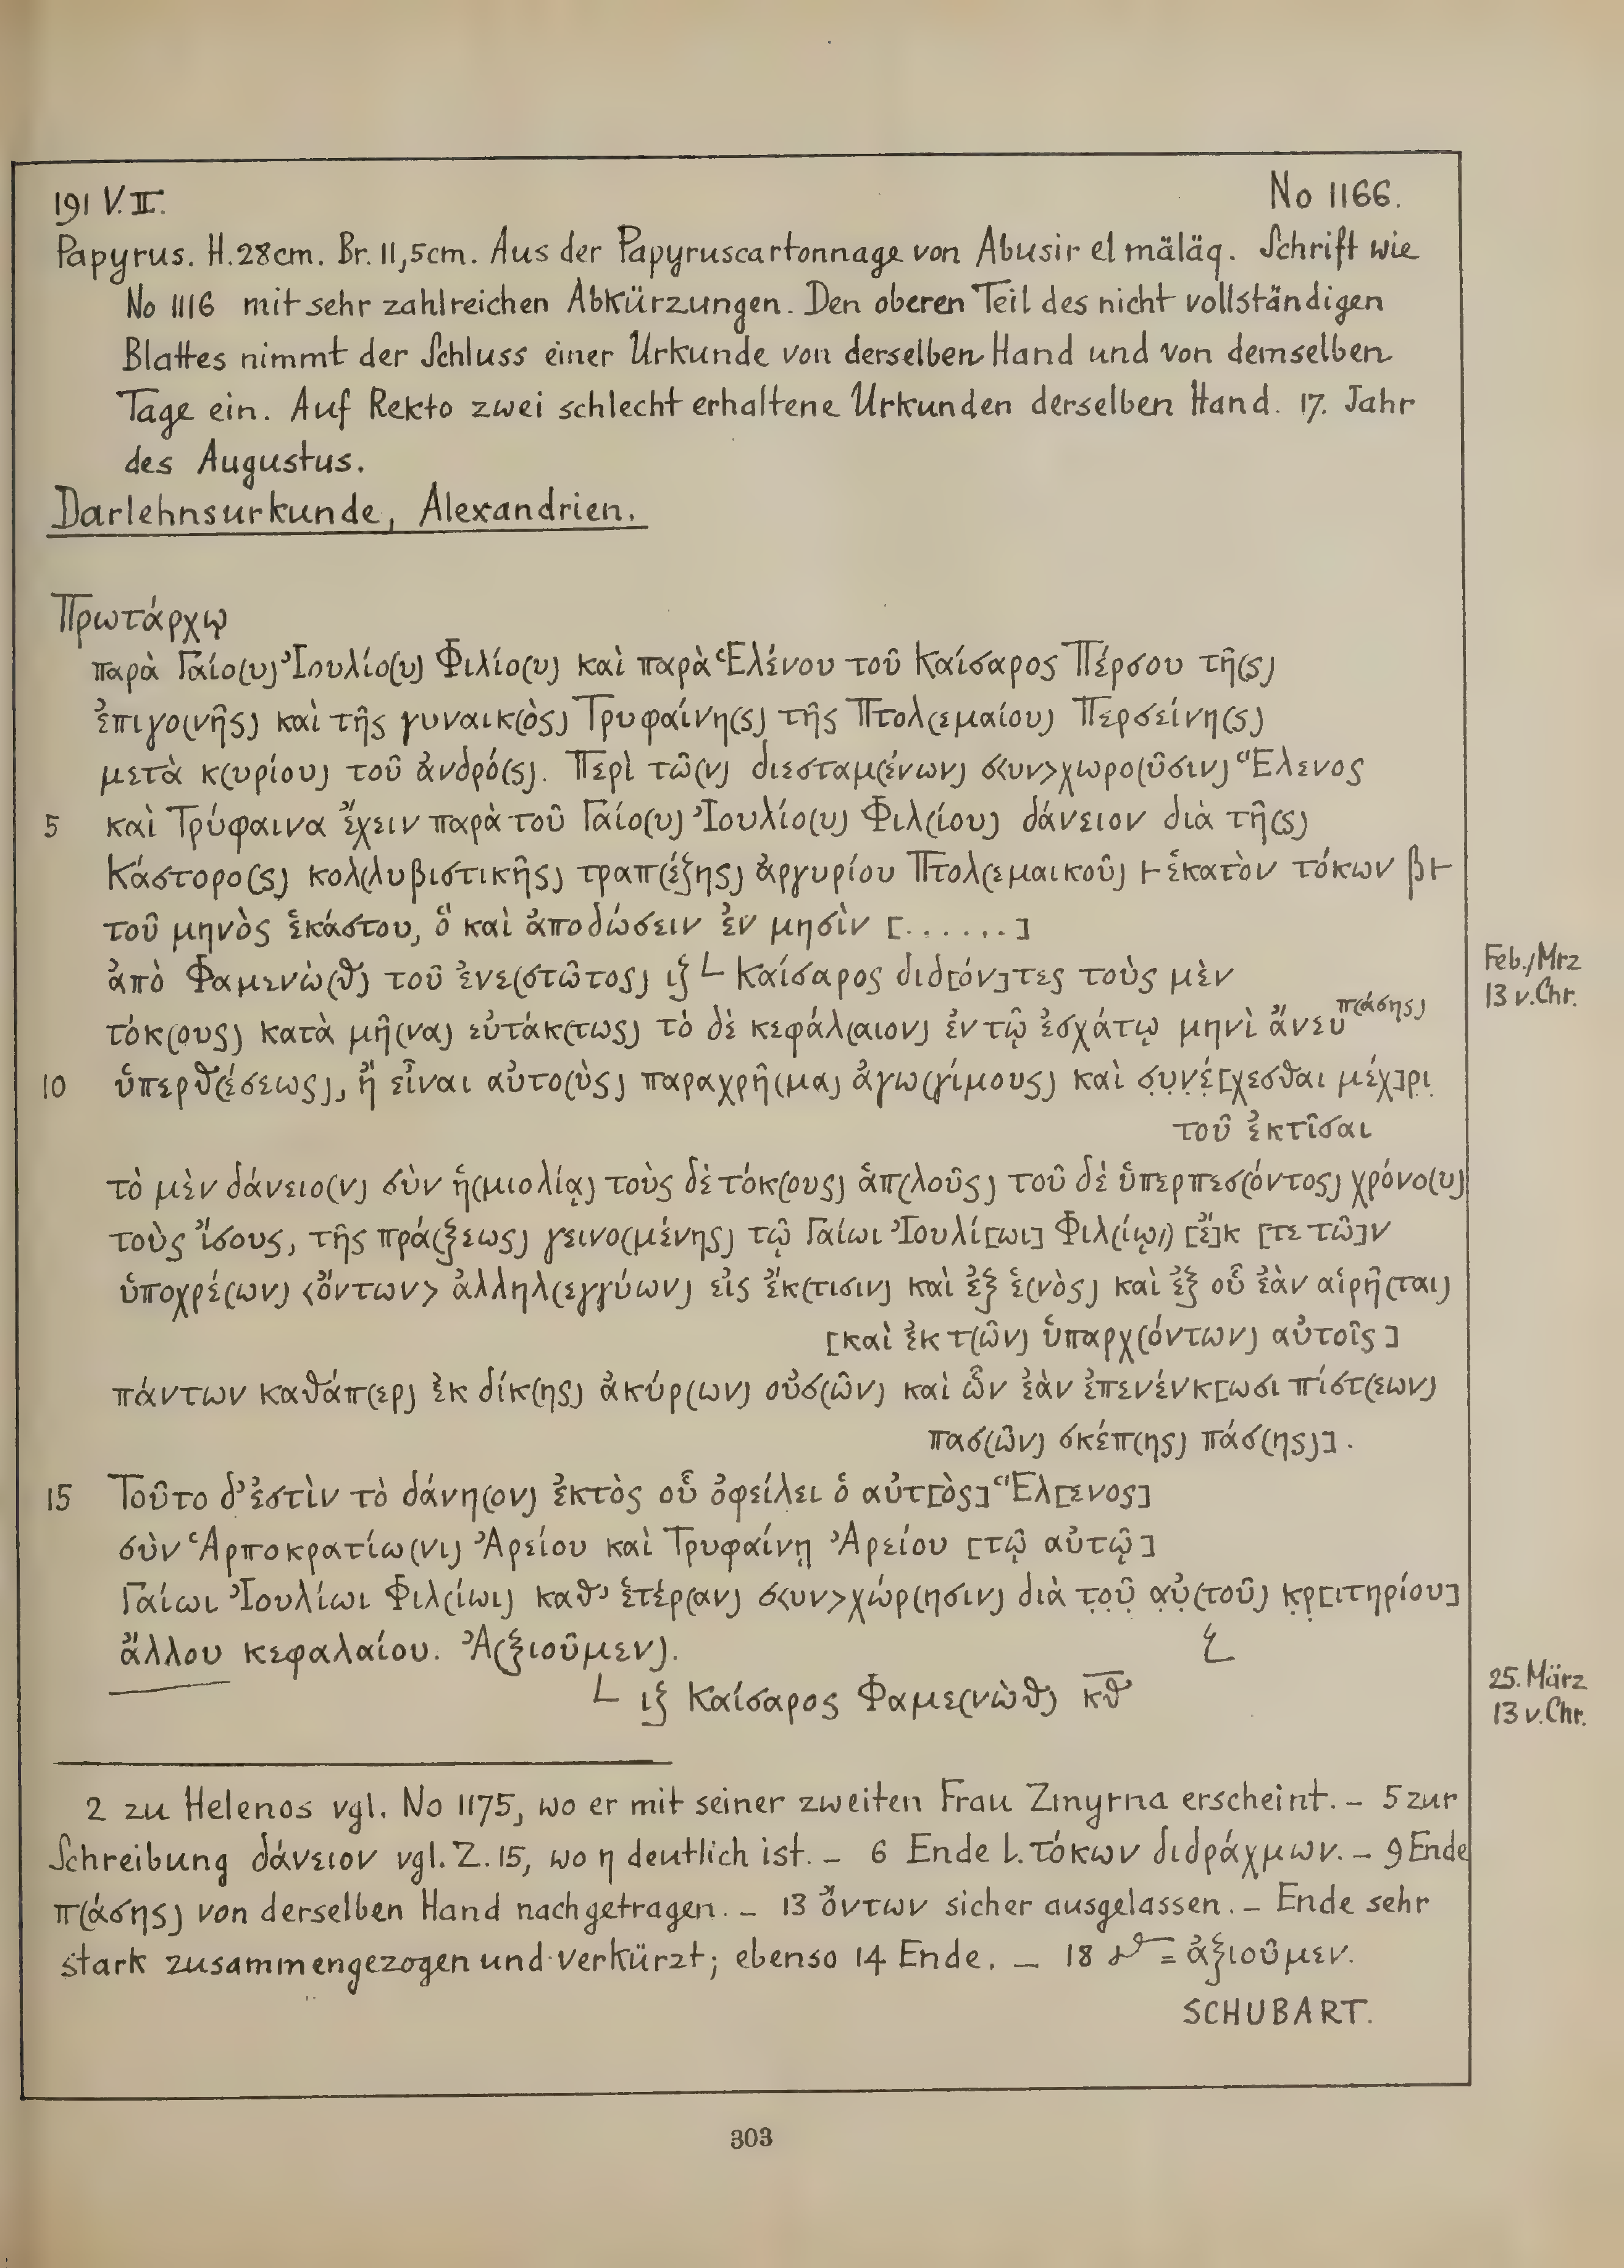 191 V. II.
No 1166.
Papyrus. H. 28cm. Br. 11,5cm. Aus der Papyruscartonnage von Abusir el mäläq. Schrift wie
No 1116 mit sehr zahlreichen Abkürzungen. Den oberen Teil des nicht vollständigen
Blattes nimmt der Schluss einer Urkunde von derselben Hand und von demselben
Tage ein. Auf Rekto zwei schlecht erhaltene Urkunden derselben Hand. 17. Jahr
des Augustus.
Darlehnsurkunde, Alexandrien.
Πρωτάρχῳ
παρὰ Γαίο(υ) Ἰουλίο(υ) Φιλίο(υ) καὶ παρὰ Ἑλένου τοῦ Καίσαρος Πέρσου τῆ(ς)
ἐπιγο(νῆς) καὶ τῆς γυναικ(ὸς) Τρυφαίνη(ς) τῆς Πτολ(εμαίου) Περσείνη(ς)
μετὰ κ(υρίου) τοῦ ἀνδρό(ς). Περὶ τῶ(ν) διεσταμ(ένων) σ<υν>χωρο(ῦσιν) Ἕλενος
5 καὶ Τρύφαινα ἔχειν παρὰ τοῦ Γαίο(υ) Ἰουλίο(υ) Φιλ(ίου) δάνειον διὰ τῆ(ς)
Κάστορο(ς) κολ(λυβιστικῆς) τραπ(έζης) ἀργυρίου Πτολ(εμαικοῦ) 𐅂 ἑκατὸν τόκων β𐅂
τοῦ μηνὸς ἑκάστου, ὃ καὶ ἀποδώσειν ἐν μησὶν [......]
ἀπὸ Φαμενὼ(θ) τοῦ ἐνε(στῶτος) ιζ L Καίσαρος διδ[όν]τες τοὺς μὲν
Feb./Mrz
13 v. Chr.
τόκ(ους) κατὰ μῆ(να) εὐτάκ(τως) τὸ δὲ κεφάλ(αιον) ἐν τῷ ἐσχάτῳ μηνὶ ἄνευ π(άσης)
10 ὑπερθ(έσεως), ἢ εἶναι αὐτο(ὺς) παραχρῆ(μα) ἀγω(γίμους) καὶ σ̣υ̣ν̣έ̣[χεσθαι μέχ]ρ̣ι̣
τοῦ ἐκτῖσαι
τὸ μὲν δάνειο(ν) σὺν ἡ(μιολίᾳ) τοὺς δὲ τόκ(ους) ἁπ(λοῦς) τοῦ δὲ ὑπερπεσ(όντος) χρόνο(υ)
τοὺς ἴσους, τῆς πρά(ξεως) γεινο(μένης) τῷ Γαίωι Ἰουλί[ωι] Φιλ(ίῳ) [ἔ]κ [τε τῶ]ν
ὑποχρέ(ων) <ὄντων> ἀλληλ(εγγύων) εἰς ἔκ(τισιν) καὶ ἐξ ἑ(νὸς) καὶ ἐξ οὗ ἐὰν αἱρῆ(ται)
[καὶ ἐκ τ(ῶν) ὑπαρχ(όντων) αὐτοῖς]
πάντων καθάπ(ερ) ἐκ δίκ(ης) ἀκύρ(ων) οὐσ(ῶν) καὶ ὧν ἐὰν ἐπενένκ[ωσι πίστ(εων)
πασ(ῶν) σκέπ(ης) πάσ(ης)].
15 Τοῦτο δ’ ἐστὶν τὸ δάνη(ον) ἐκτὸς οὗ ὀφείλει ὁ αὐτ[ὸς] Ἕλ[ενος]
σὺν Ἁρποκρατίω(νι) Ἀρείου καὶ Τρυφαίνῃ Ἀρείου [τῷ αὐτῷ]
Γαίωι Ἰουλίωι Φιλ(ίωι) καθ’ ἑτέρ(αν) σ<υν>χώρ(ησιν) διὰ τ̣ο̣ῦ̣ α̣ὐ̣(τοῦ) κ̣ρ̣[ιτηρίου]
ἄλλου κεφαλαίου. Ἀ(ξιοῦμεν).
L ιζ Καίσαρος Φαμε(νὼθ) κθ
25. März
13 v. Chr.
2 zu Helenos vgl. No 1175, wo er mit seiner zweiten Frau Zmyrna erscheint. – 5 zur
Schreibung δάνειον vgl. Z. 15, wo η deutlich ist. – 6 Ende l. τόκων διδράχμων. – 9 Ende
π(άσης) von derselben Hand nachgetragen. – 13 ὄντων sicher ausgelassen. – Ende sehr
stark zusammengezogen und verkürzt; ebenso 14 Ende. – 18 = ἀξιοῦμεν.
SCHUBART.
303